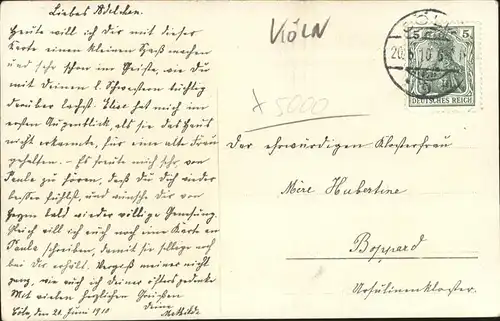 Liebes Adelchen.
Heute will ich Dir mit dieser
Karte einen kleinen Spaß machen
und sehe schon im Geiste, wie Du
mit Deinen l. Schwestern tüchtig
darüber lachst. Else hat mich im
ersten Augenblick, als sie das
nicht erkannte, für eine alte Frau
gehalten. – Es freute mich sehr, von
Paula zu hören, daß Du Dich wieder
besser fühlst, und wünsche Dir von
Herzen bald wieder völlige Genesung.
will ich euch noch eine Karte an
Paula schreiben, damit sie selbige noch
bei Dir erhält. Vergeß meiner nicht
ganz, wie auch ich Deiner öfters gedenke
Mit vielen herzlichen Grüßen
Deine
Cöln, den 20. Juni 1910. Mathilde
KÖLN
x 5000
CÖLN
20.6.10
9
5 5
DEUTSCHES REICH
Der ehrwürdigen Klosterfrau
Mère Hubertine
Boppard
Ursulinenkloster.